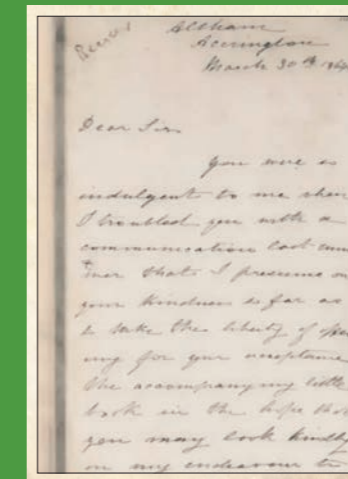 Altham
Accrington
March 30th 1864
Dear Sir
you were so
indulgent to me when
I troubled you with a
communication last sum
mer that I presume on
your kindness so far as
to take the liberty of
ing for your acceptance
the accompanying little
book in the hope that
you may look kindly
on my endeavour to